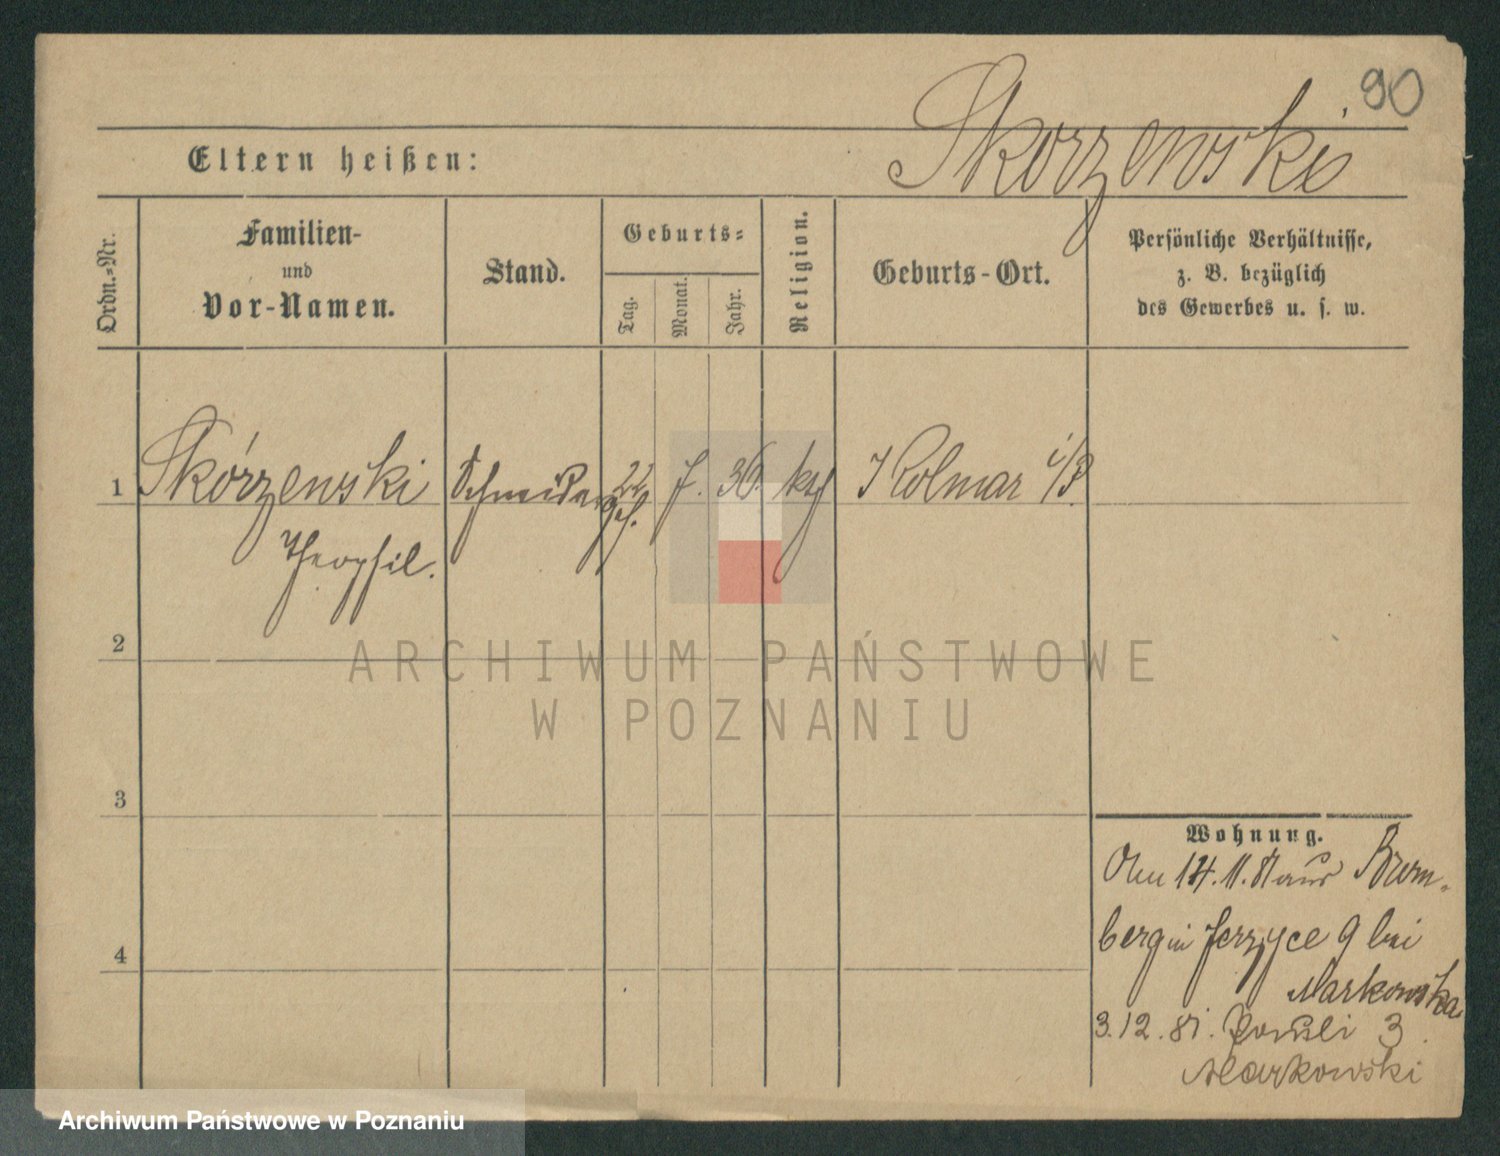 90
Skorzewski
Eltern heißen:
Ordn.-Nr.
Familien-
und
Vor-Namen.
Stand.
Geburts-
Tag.
Monat.
Jahr.
Religion.
Geburts-Ort.
Persönliche Verhältnisse,
z. B. bezüglich
des Gewerbes u. s. w.
1 Skórzewski Schneider 22 7. 36. kth Kolmar i/P.
ges.
Theophil.
2
3
4
ARCHIWUM PAŃSTWOWE
W POZNANIU
Wohnung.
14. 11. 81 aus Brom-
berg in Jerzyce 9 bei
Markowska
3. 12. 81. 3
Markowski
Archiwum Państwowe w Poznaniu